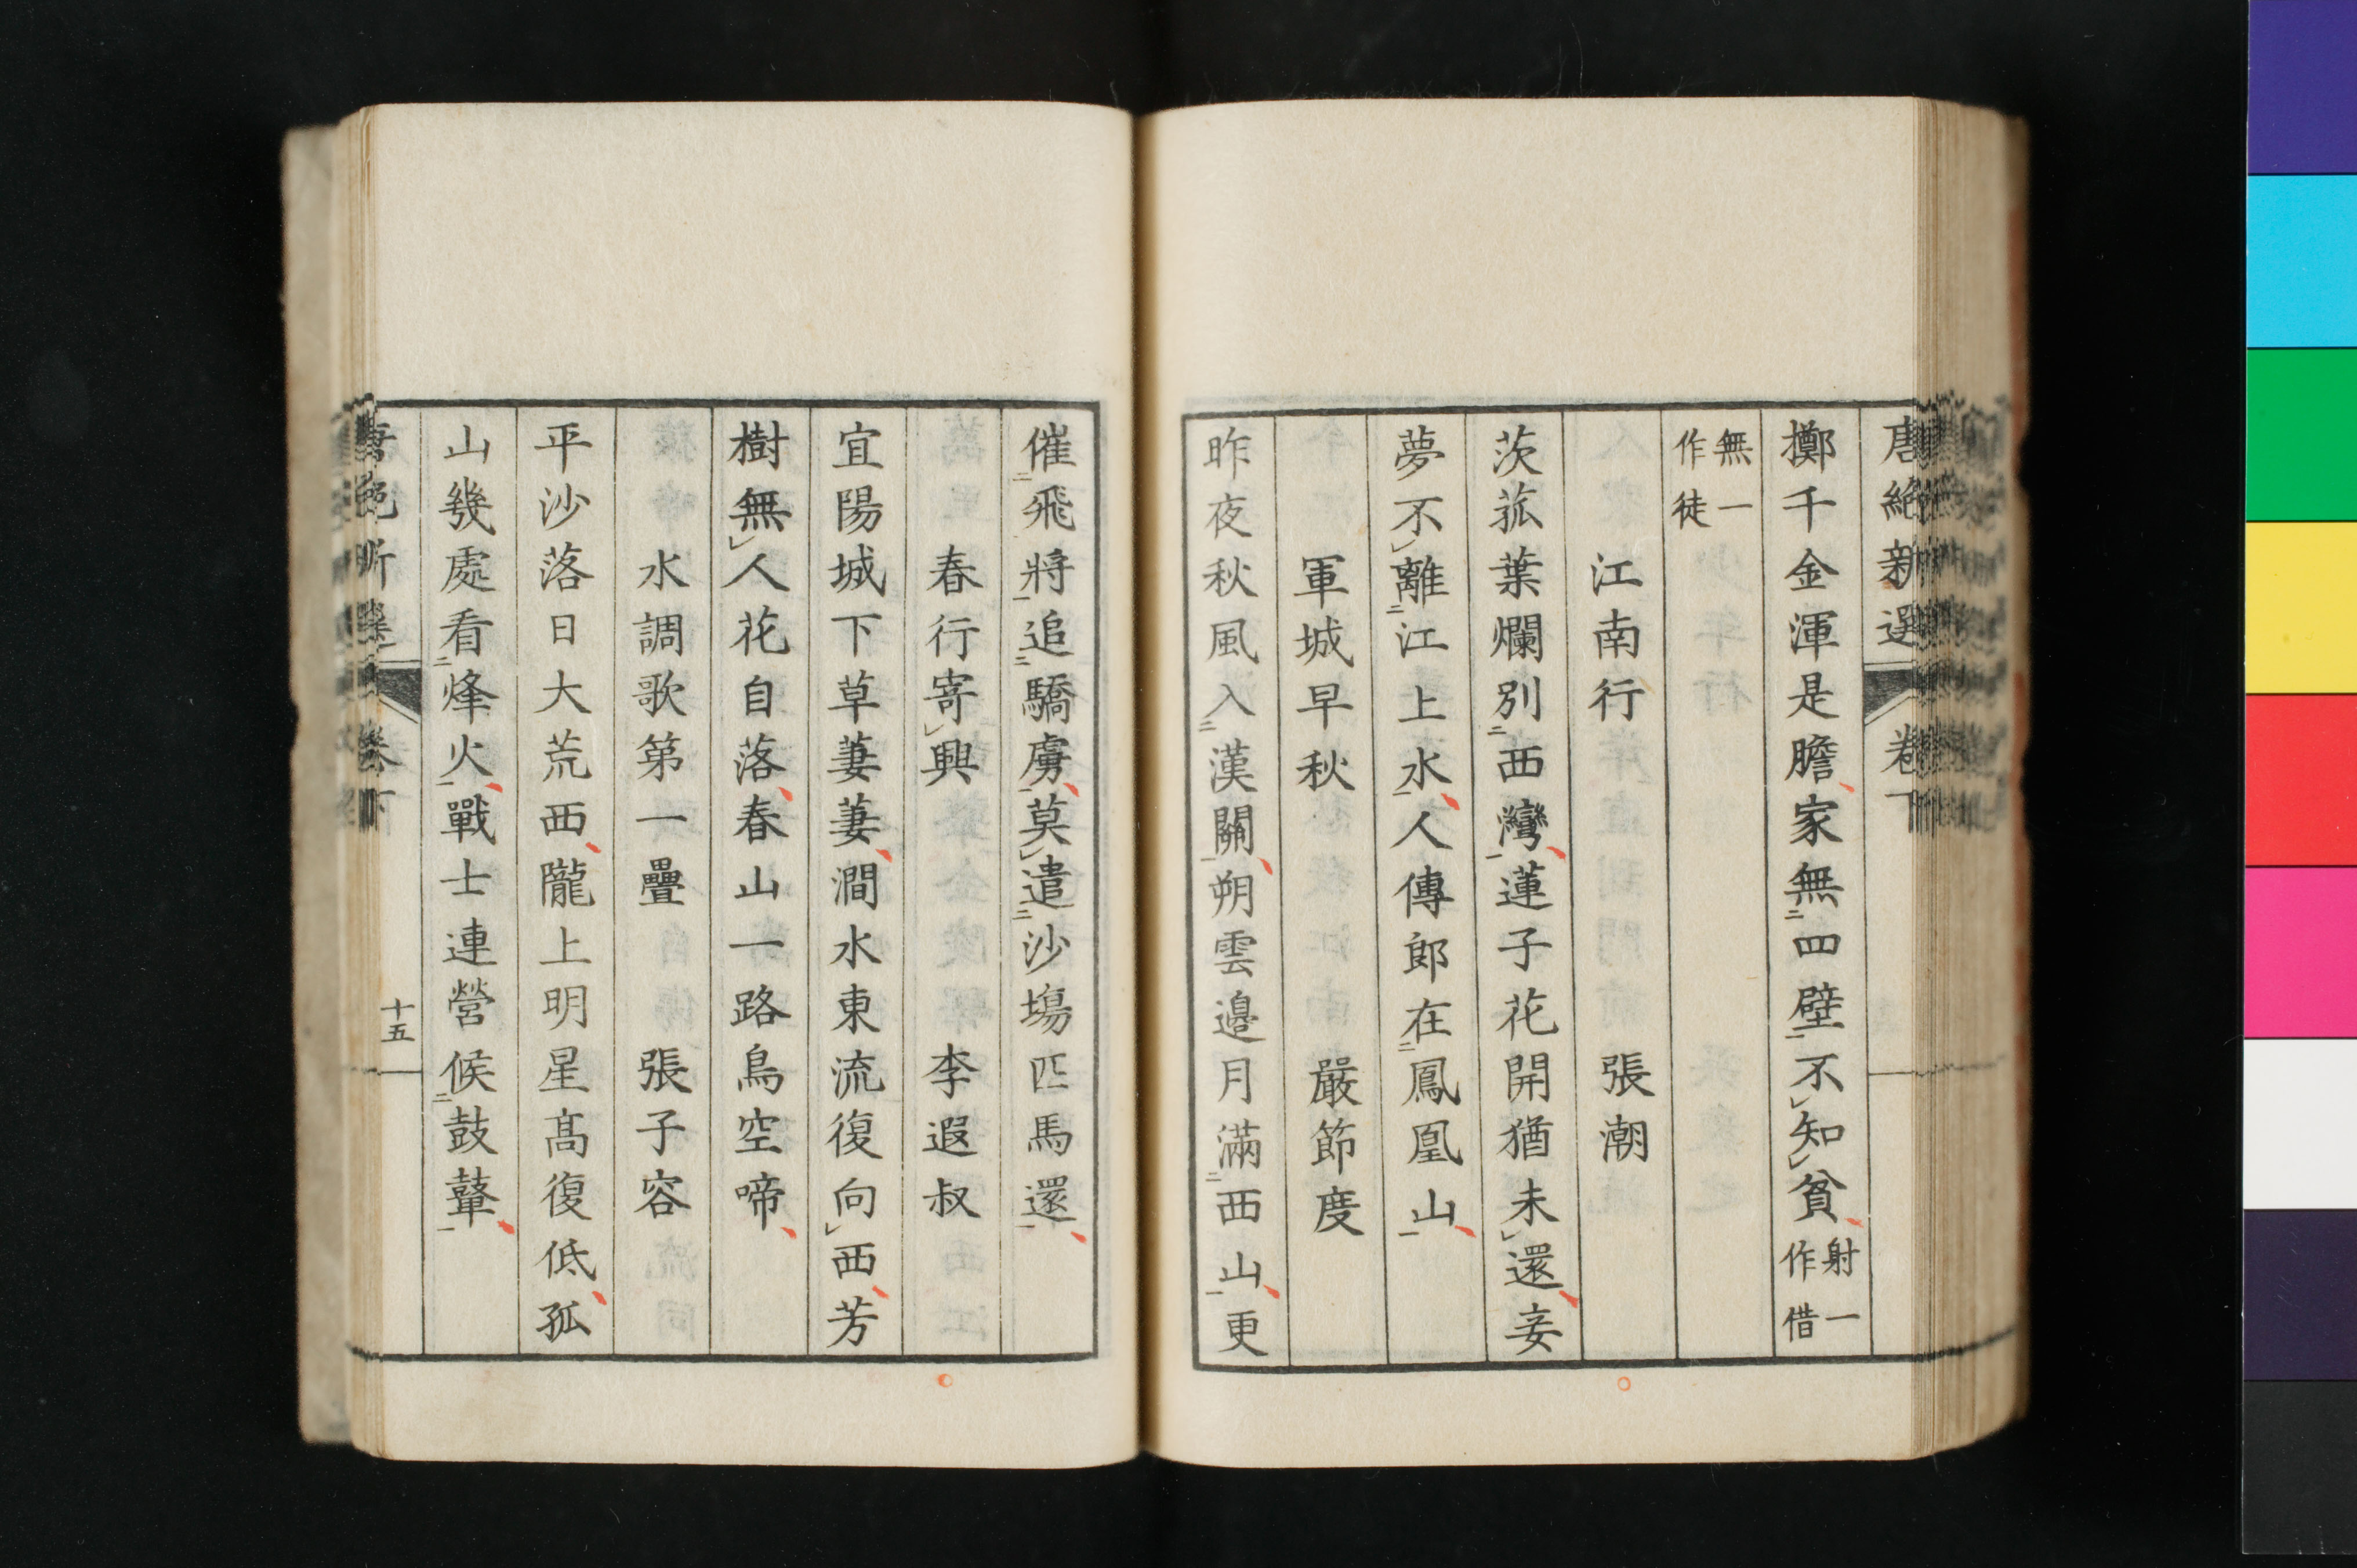 唐絶新選 卷下
擲千金渾是膽家無二四壁一不レ知レ貧射一作借
無一作徒
江南行 張潮
茨菰葉爛別二西灣一蓮子花開猶未レ還妾
夢不レ離二江上水一人傳郎在二鳳凰山一
軍城早秋 嚴節度
昨夜秋風入二漢關一朔雲邉月滿二西山一更
催二飛將一追二驕虜一莫レ遣二沙塲匹馬還一
春行寄レ興 李遐叔
宜陽城下草萋萋澗水東流復向レ西芳
樹無レ人花自落春山一路鳥空啼
水調歌第一疊 張子容
平沙落日大荒西隴上明星髙復低孤
山幾處看二烽火一戰士連營候二鼓鼙一
唐絶新選 卷下 十五